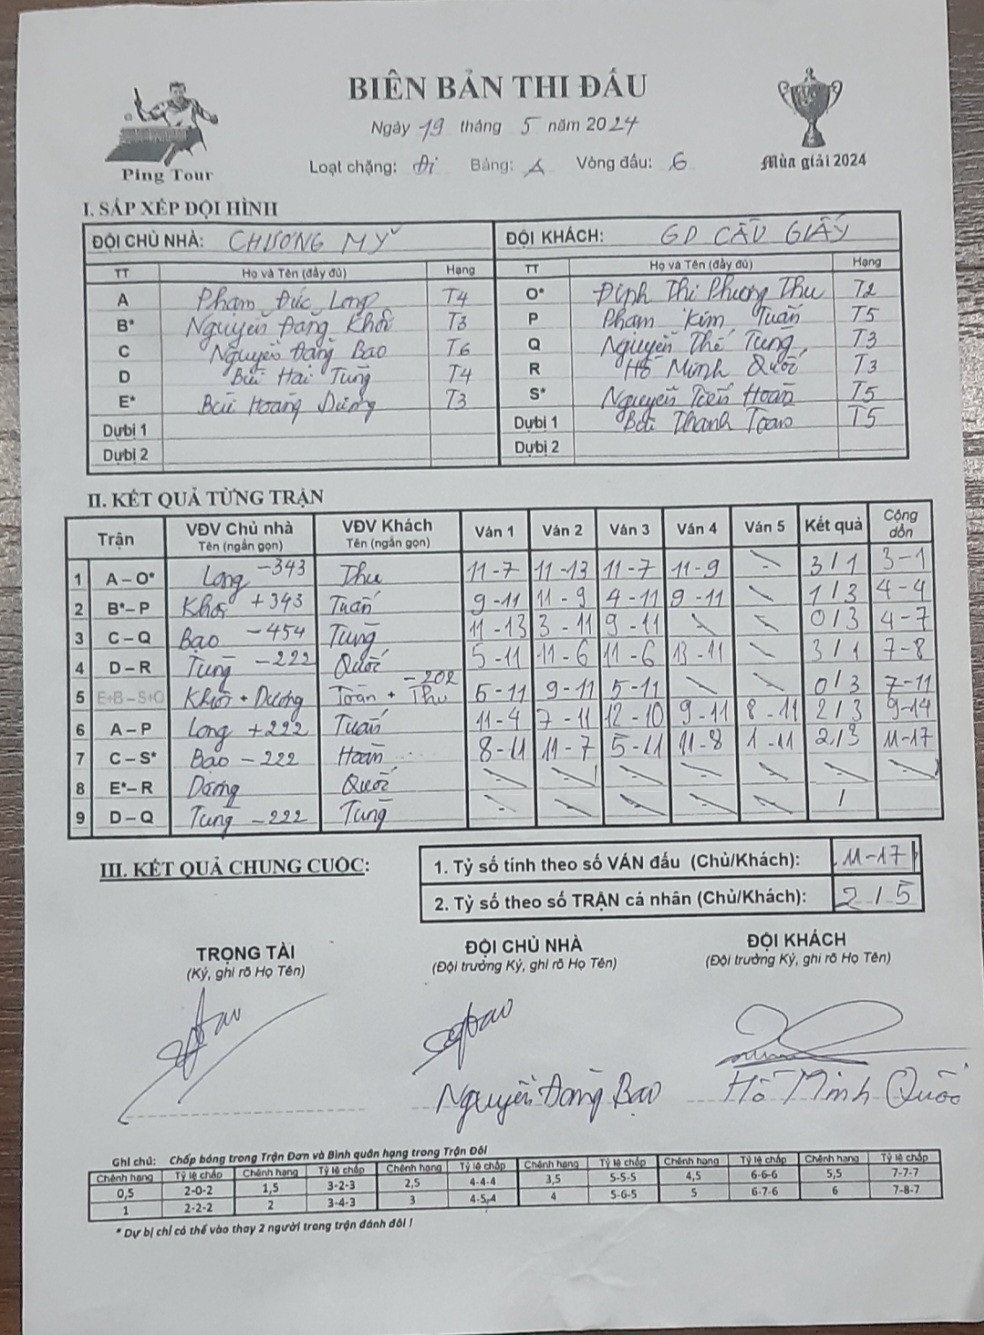 BIÊN BẢN THI ĐẤU
Ngày 19 tháng 5 năm 2024
Loạt chặng: Đi Bảng: A Vòng đấu: 6
Ping Tour
Mùa giải 2024
I. SẮP XẾP ĐỘI HÌNH
ĐỘI CHỦ NHÀ: CHƯƠNG MỸ ĐỘI KHÁCH: GD CẦU GIẤY
TT Họ và Tên (đầy đủ) Hạng TT Họ và Tên (đầy đủ) Hạng
A Phạm Đức Long T4 O* Đinh Thị Phương Thu T2
B* Nguyễn Đăng Khôi T3 P Phạm Kim Tuấn T5
C Nguyễn Đăng Bao T6 Q Nguyễn Thế Tùng T3
D Bùi Hai Tùng T4 R Hồ Minh Quốc T3
E* Bùi Hoàng Dương T3 S* Nguyễn Tiến Hoàn T5
Dự bị 1 Dự bị 1 Bùi Thanh Toàn T5
Dự bị 2 Dự bị 2
II. KẾT QUẢ TỪNG TRẬN
Trận VĐV Chủ nhà Tên (ngắn gọn) VĐV Khách Tên (ngắn gọn) Ván 1 Ván 2 Ván 3 Ván 4 Ván 5 Kết quả Cộng dồn
1 A – O* Long -343 Thu 11-7 11-13 11-7 11-9 3/1 3-1
2 B*– P Khôi +343 Tuấn 9-11 11-9 4-11 9-11 1/3 4-4
3 C – Q Bao -454 Tùng 11-13 3-11 9-11 0/3 4-7
4 D – R Tùng -222 Quốc 5-11 11-6 11-6 13-11 3/1 7-8
5 E+B – S+O Khôi + Dương Toàn + Thu -202 5-11 9-11 5-11 0/3 7-11
6 A – P Long +222 Tuấn 11-4 7-11 12-10 9-11 8-11 2/3 9-14
7 C – S* Bao -222 Hoàn 8-11 11-7 5-11 11-8 1-11 2/3 11-17
8 E*– R Dương Quốc
9 D – Q Tùng -222 Tùng /
III. KẾT QUẢ CHUNG CUỘC:
1. Tỷ số tính theo số VÁN đấu (Chủ/Khách): 11-17
2. Tỷ số theo số TRẬN cá nhân (Chủ/Khách): 2/5
TRỌNG TÀI ĐỘI CHỦ NHÀ ĐỘI KHÁCH
(Ký, ghi rõ Họ Tên) (Đội trưởng Ký, ghi rõ Họ Tên) (Đội trưởng Ký, ghi rõ Họ Tên)
Nguyễn Đăng Bao Hồ Minh Quốc
Ghi chú: Chấp bóng trong Trận Đơn và Bình quân hạng trong Trận Đôi
Chênh hạng Tỷ lệ chấp Chênh hạng Tỷ lệ chấp Chênh hạng Tỷ lệ chấp Chênh hạng Tỷ lệ chấp Chênh hạng Tỷ lệ chấp Chênh hạng Tỷ lệ chấp
0,5 2-0-2 1,5 3-2-3 2,5 4-4-4 3,5 5-5-5 4,5 6-6-6 5,5 7-7-7
1 2-2-2 2 3-4-3 3 4-5-4 4 5-6-5 5 6-7-6 6 7-8-7
* Dự bị chỉ có thể vào thay 2 người trong trận đánh đôi !